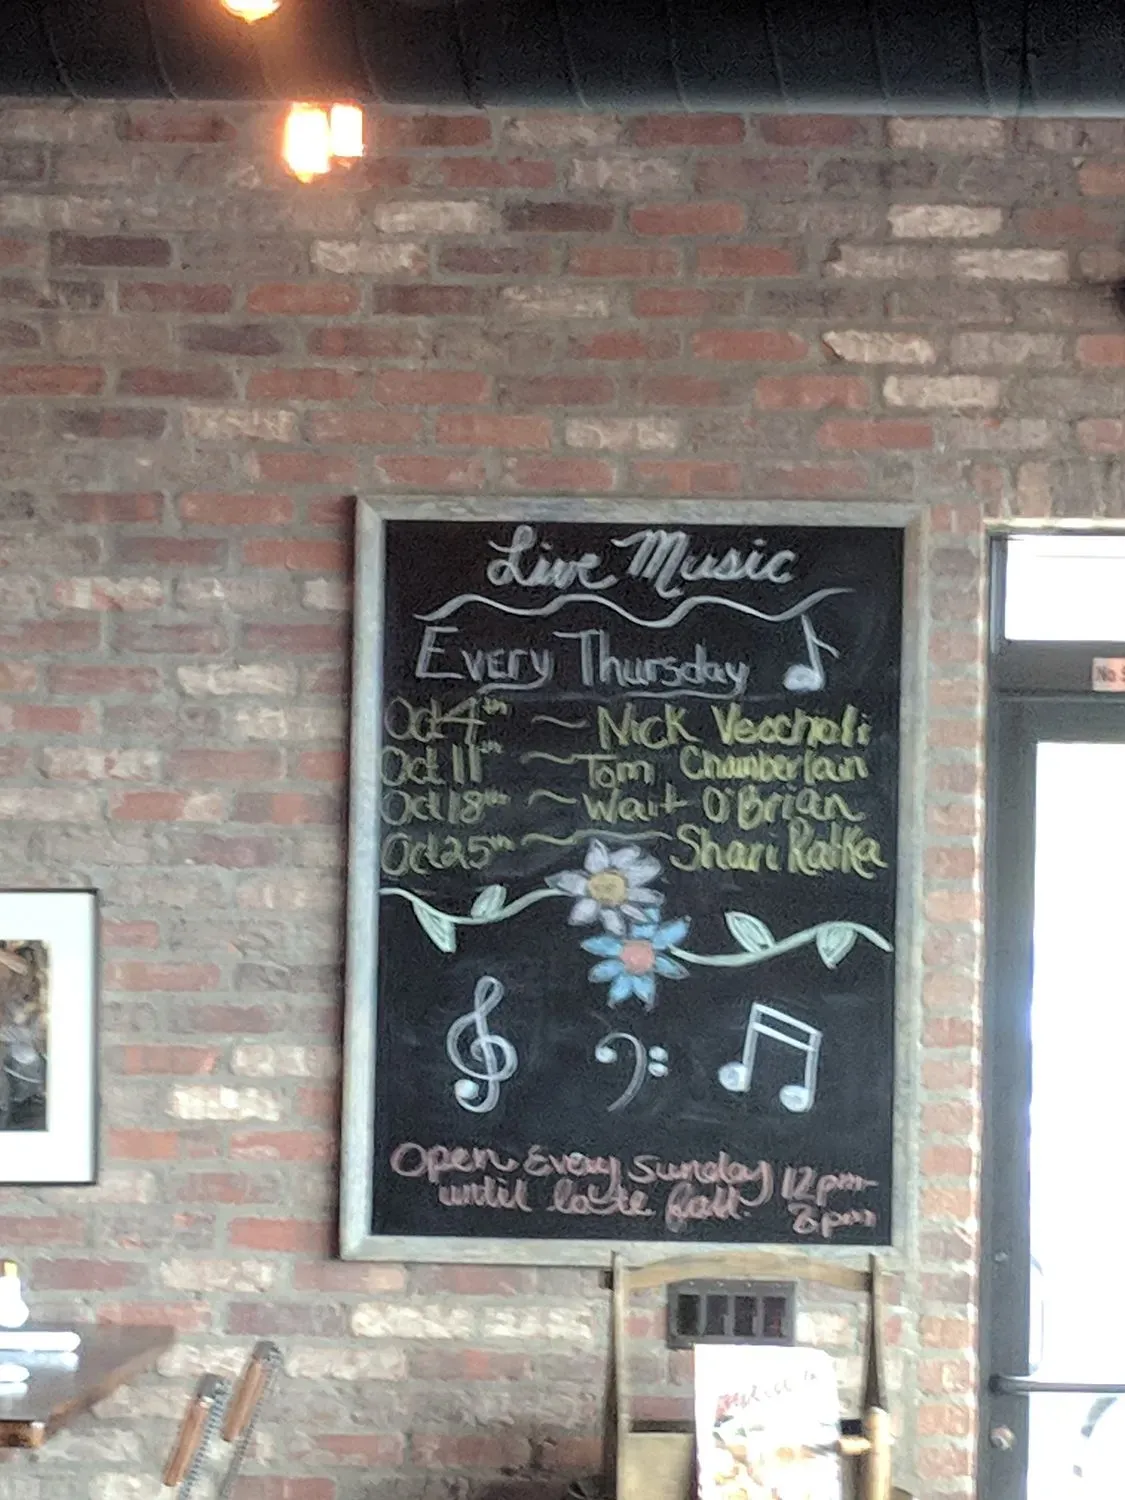 Live Music
Every Thursday
Oct 4th ~ Nick Vecchali
Oct 11th ~ Tom Chamberlan
Oct 18th ~ Wait O'Brian
Oct 25th ~ Shari Ratka
Open Every Sunday 12pm-
until late fall. 8pm
No